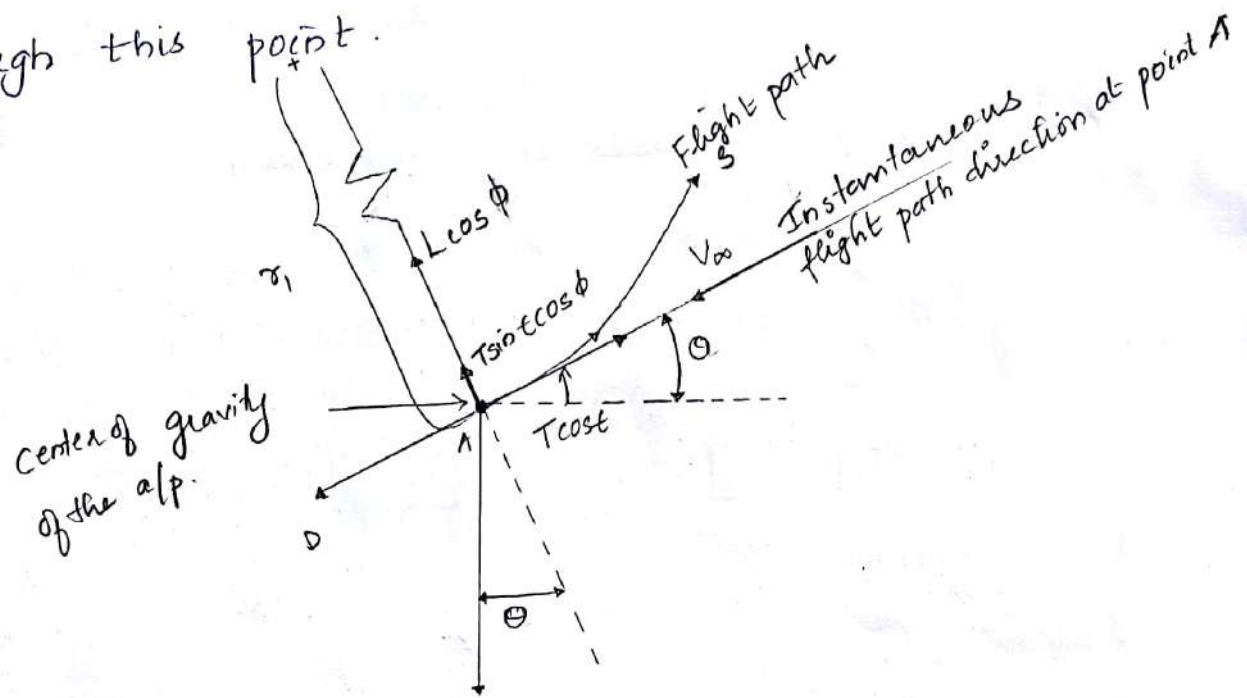 this point.
+
Flight path
S
Instantaneous
flight path direction at point A
V∞
L cos ϕ
r₁
T sin ϵ cos ϕ
θ
center of gravity
of the a/p.
A
T cos ϵ
D
θ